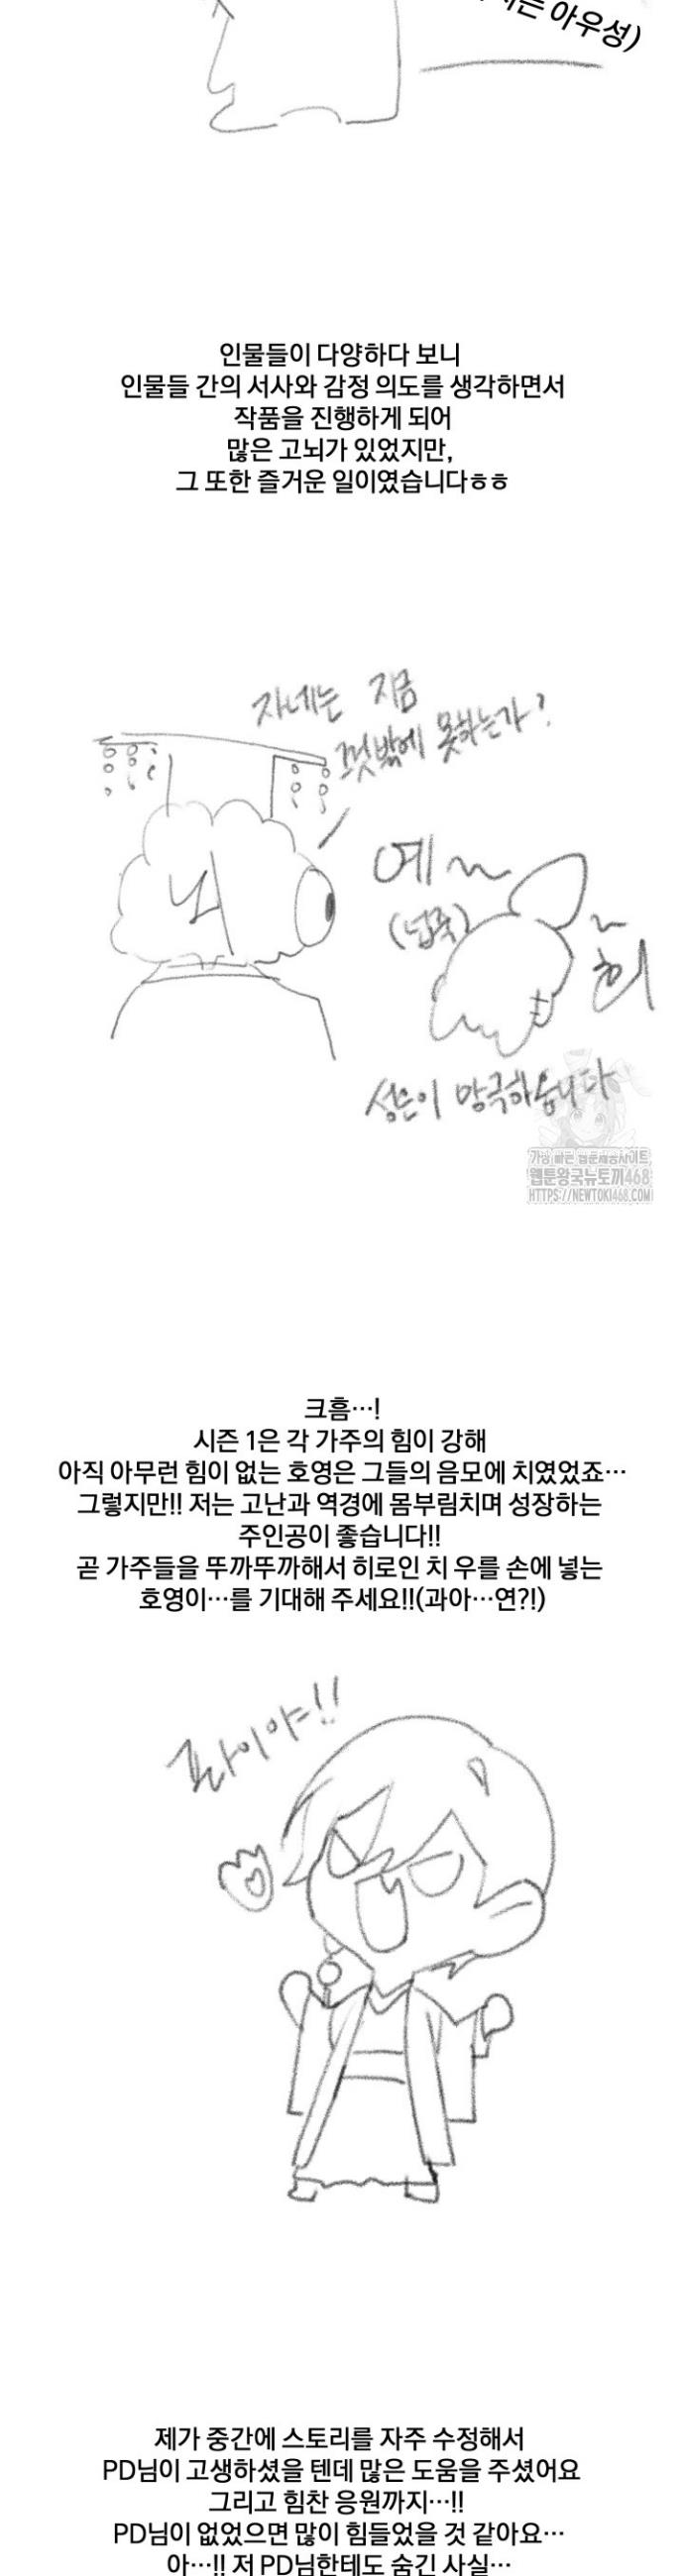 는 아우성)
인물들이 다양하다 보니
인물들 간의 서사와 감정 의도를 생각하면서
작품을 진행하게 되어
많은 고뇌가 있었지만,
그 또한 즐거운 일이였습니다ㅎㅎ
자네는 지금
껏밖에 못하는가?
예~
(넙죽)
~희
성은이 망극하옵니다
가장 빠른 웹툰제공사이트
웹툰왕국뉴토끼468
HTTPS://NEWTOKI468.COM
크흠…!
시즌 1은 각 가주의 힘이 강해
아직 아무런 힘이 없는 호영은 그들의 음모에 치였었죠…
그렇지만!! 저는 고난과 역경에 몸부림치며 성장하는
주인공이 좋습니다!!
곧 가주들을 뚜까뚜까해서 히로인 치 우를 손에 넣는
호영이…를 기대해 주세요!!(과아…연?!)
퐈이야!!
제가 중간에 스토리를 자주 수정해서
PD님이 고생하셨을 텐데 많은 도움을 주셨어요
그리고 힘찬 응원까지…!!
PD님이 없었으면 많이 힘들었을 것 같아요…
아…!! 저 PD님한테도 숨긴 사실…